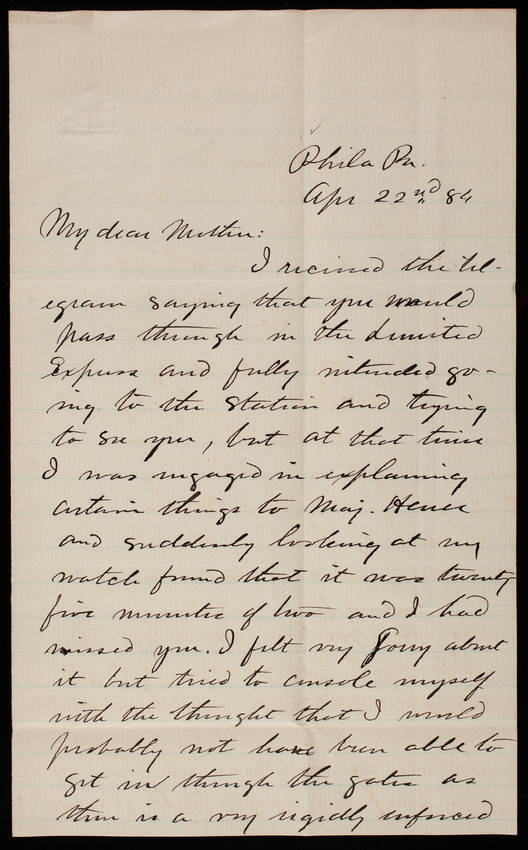 Phila Pa.
Apr 22nd 84
My dear Mother:
I recieved the tel-
egram saying that you would
pass through in the Limited
Express and fully intended go-
ing to the station and trying
to see you, but at that time
I was engaged in explaining
certain things to Maj. Heuer
and suddenly looking at my
watch found that it was twenty
five minutes of two and I had
missed you. I felt very sorry about
it but tried to console myself
with the thought that I would
probably not have been able to
get in through the gates as
there is a very rigidly enforced